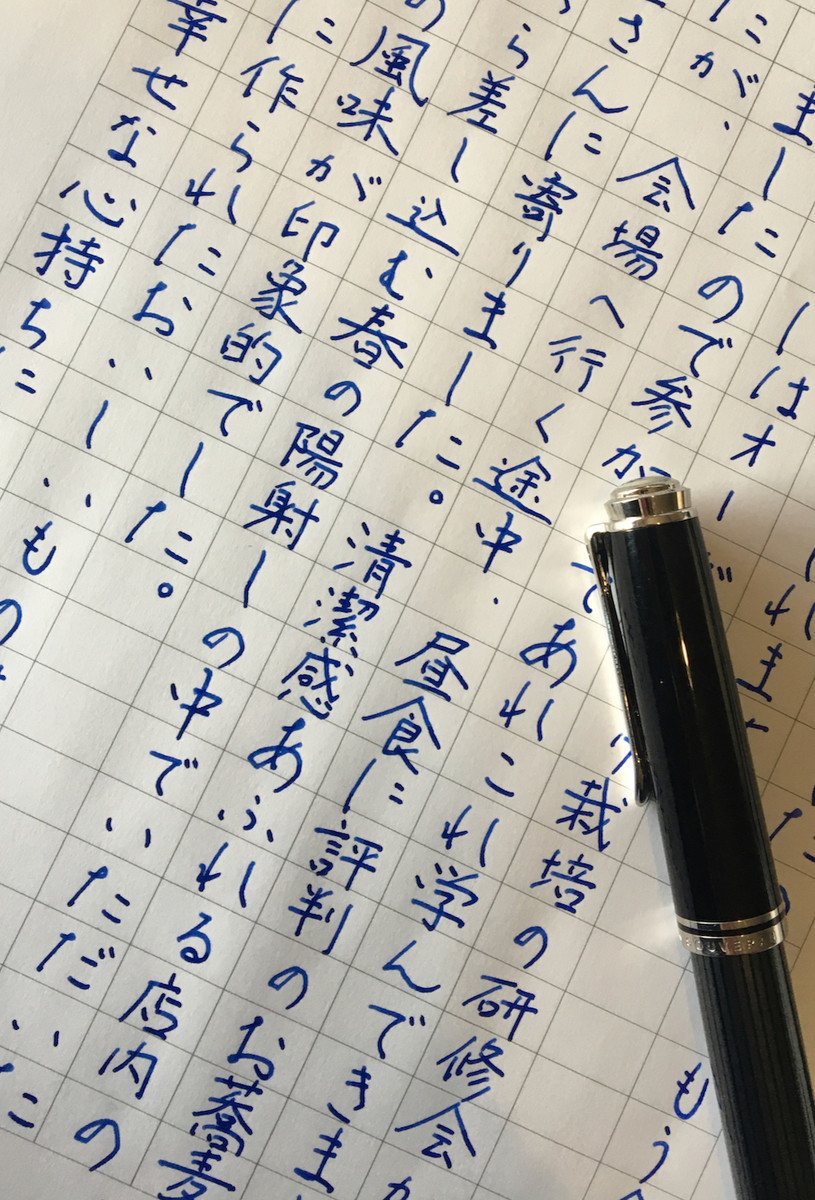 れま
もう
はオー
栽培の研修会
ましたので参加
てあれこれ学んできま
が、会場へ行く途中、昼食に評判のお蕎麦
さんに寄りました。清潔感あふれる店内の
ら差し込む春の陽射しの中でいただいた
の風味が印象的でした。
に作られたおいしいもの
幸せな心持ちに